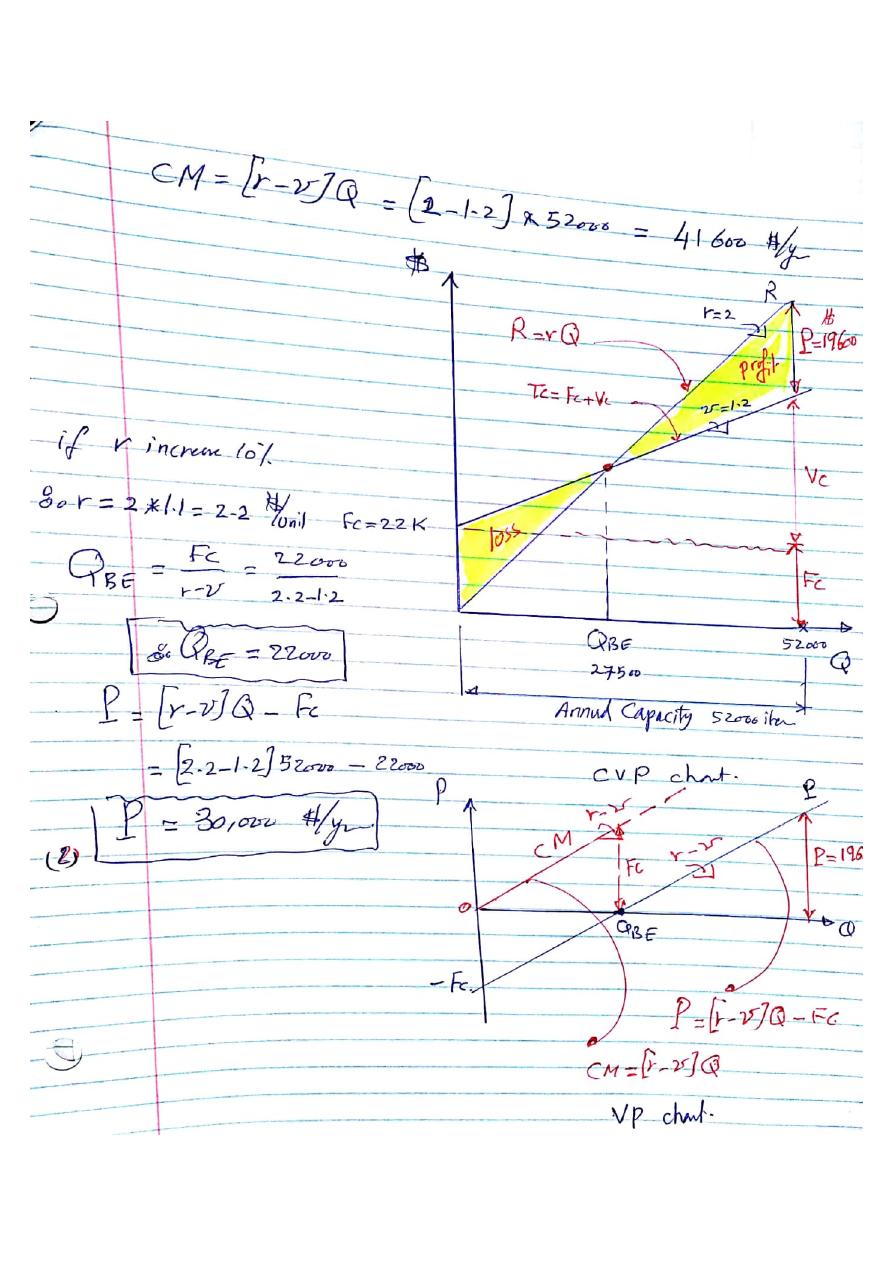 CM = [r-v]Q = [2-1.2] * 52000 = 41600 $/yr
$
R
r=2
$
P=19600
R=rQ
profit
Tc=Fc+Vc
v=1.2
Vc
loss
Fc
QBE
27500
52000
Q
Annual Capacity 52000 item
CVP chart.
if r increase 10%
So r = 2*1.1 = 2.2 $/Unit Fc=22K
QBE = Fc/r-v = 22000/2.2-1.2
∴ QBE = 22000
P = [r-v]Q - Fc
= [2.2-1.2] 52000 - 22000
P = 30,000 $/yr
(2)
P
r-v
CM
Fc
r-v
P
P=196
O
QBE
Q
-Fc
P=[r-v]Q-Fc
CM=[r-v]Q
VP chart.